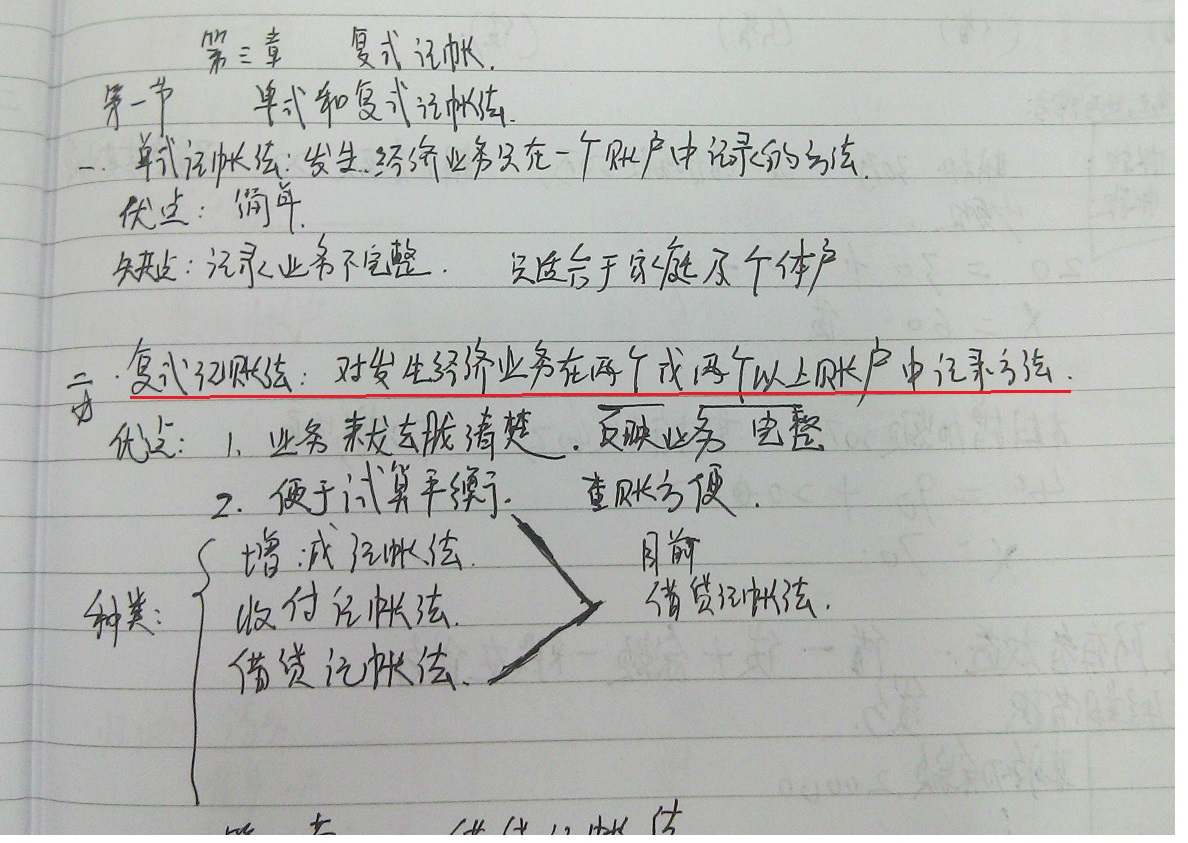 第三章 复式记帐.
第一节 单式和复式记帐法.
一. 单式记帐法: 发生经济业务只在一个账户中记录的方法.
优点: 简单.
缺点: 记录业务不完整. 只适合于家庭及个体户
二. 复式记账法: 对发生经济业务在两个或两个以上账户中记录方法.
优点: 1. 业务来龙去脉清楚. 反映业务完整
2. 便于试算平衡. 查账方便.
种类:
增减记帐法.
收付记帐法.
借贷记帐法.
目前
借贷记帐法.